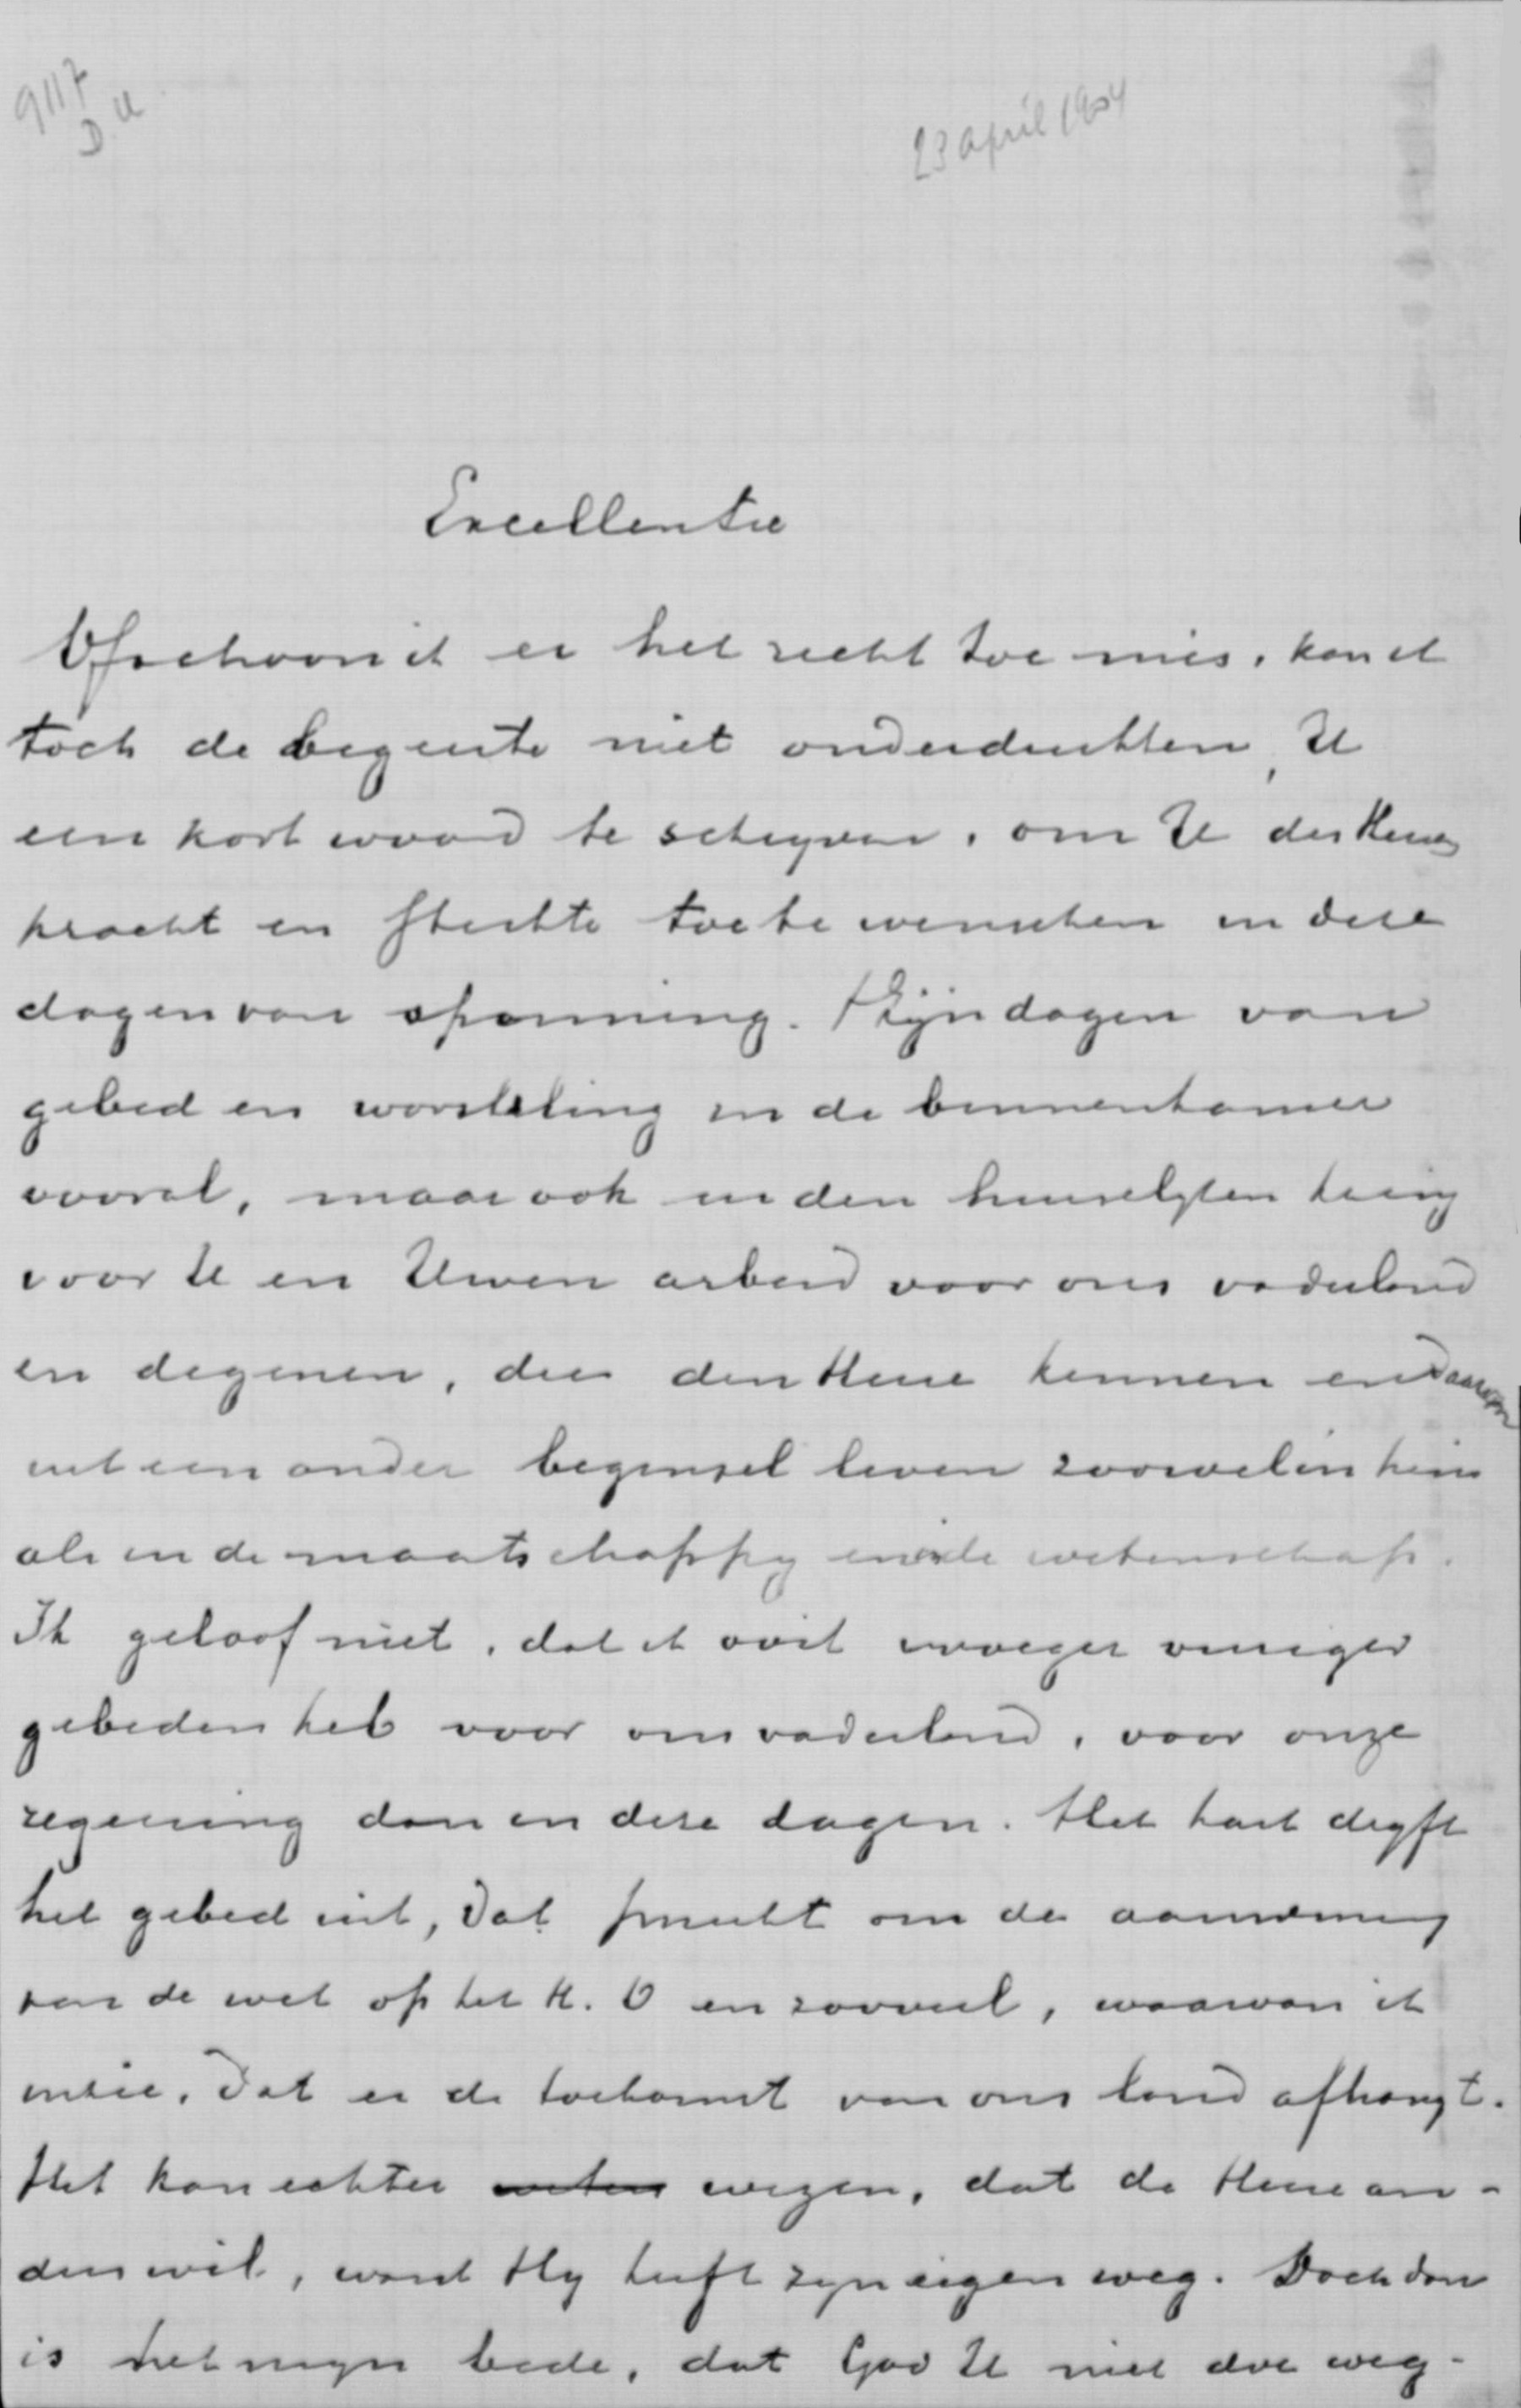 9117
D U
23 april 1904
Excellentie
Ofschoon ik er het recht toe mis, kan ik
toch de begeerte niet onderdrukken, U
een kort woord te schryven, om U des Heeren
kracht en sterkte toe te wenschen in deze
dagen van spanning. 't Zijn dagen van
gebed en worsteling in de binnenkamer
vooral, maar ook in den huiselyken kring
voor U en Uwen arbeid voor ons vaderland
en degenen, die den Heere kennen en daarom
uit een ander beginsel leven zoowel in kerk
als in de maatschappy en in de wetenschap.
Ik geloof niet, dat ik ooit vroeger vuriger
gebeden heb voor ons vaderland, voor onze
regeering dan in deze dagen. Het hart dryft
het gebed uit, dat smeekt om de aanneming
van de wet op het H. O en zooveel, waarvan ik
inzie, dat er de toekomst van ons land afhangt.
Het kan echter weten wezen, dat de Heere an-
ders wil, want Hy heeft zyn eigen weg. Doch dan
is het myn bede, dat God U niet doe weg-